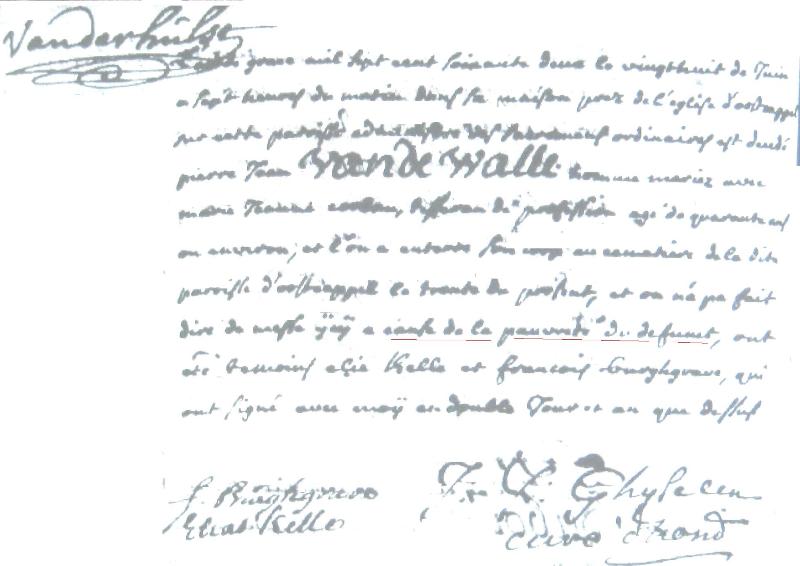 Vanderhulst
grace mil sept cent soixante deux le vingthuit de Juin
a sept heures du matin dans sa maison prez de l'eglise d'ostcappel
sur cette paroisse administre des sacrements ordinaires est decedé
pierre Jean Vande Walle homme mariez avec
marie de profession agé de quarante ans
ou environ, et l'on a enterre son corp au cemetiere de la dite
paroisse d'ostcappell le trente du present, et on n'a pu fait
dire de messe a cause de la pauvreté du defunct, ont
été temoins elie Kelle et francois burghgrave, qui
ont signé avec moÿ en double Jour et an que dessus
f. Burghgrave
Elias Kelle